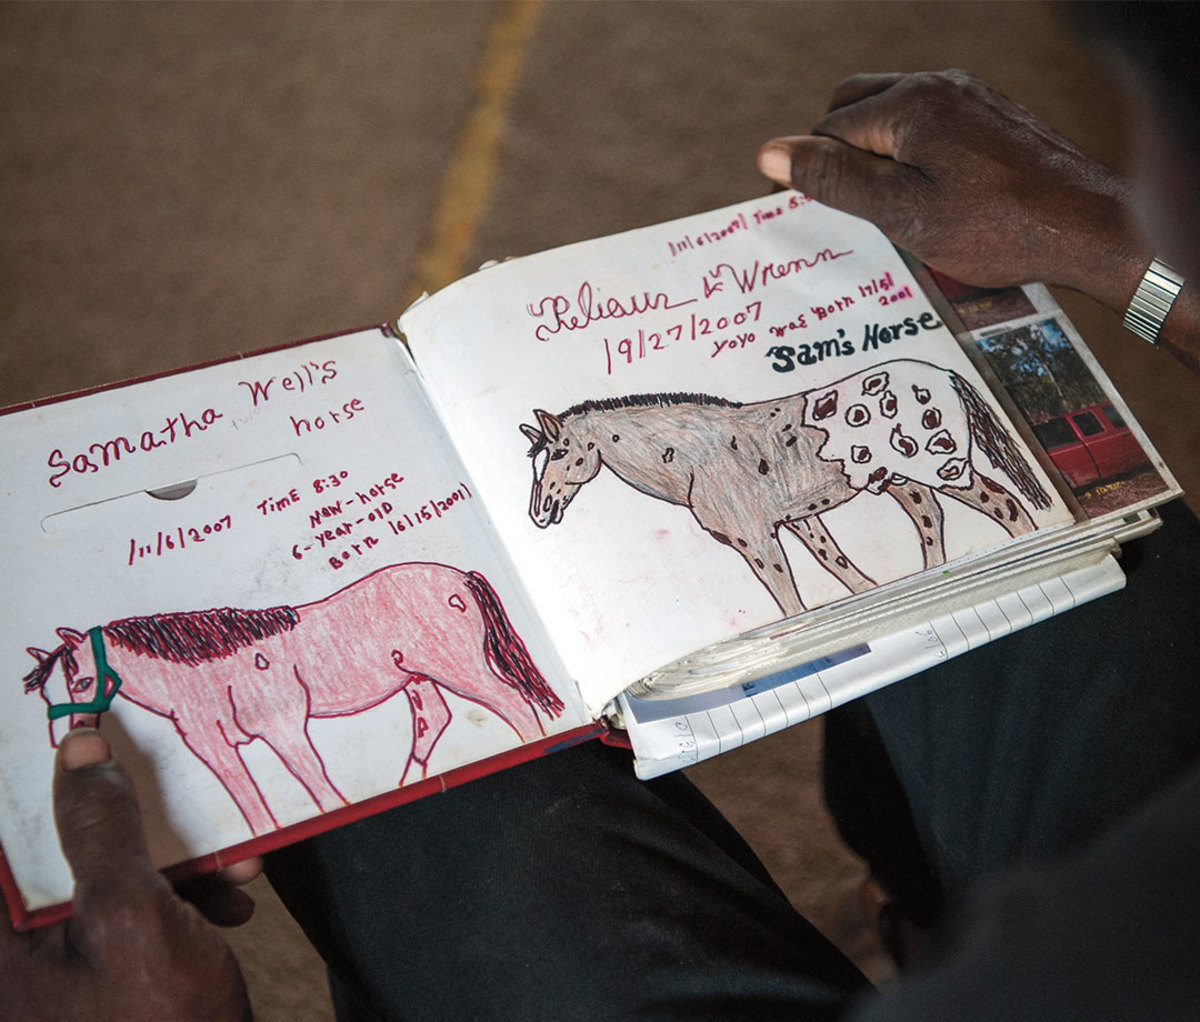 Samatha Well's
horse
/11/6/2007 Time 8:30
New-horse
6-year-old
Born /6/15/2001/
/11/6/2007/ Time 8:
& Wrenn
/9/27/2007
yoyo was Born /7/5/
2001
Sam's Horse